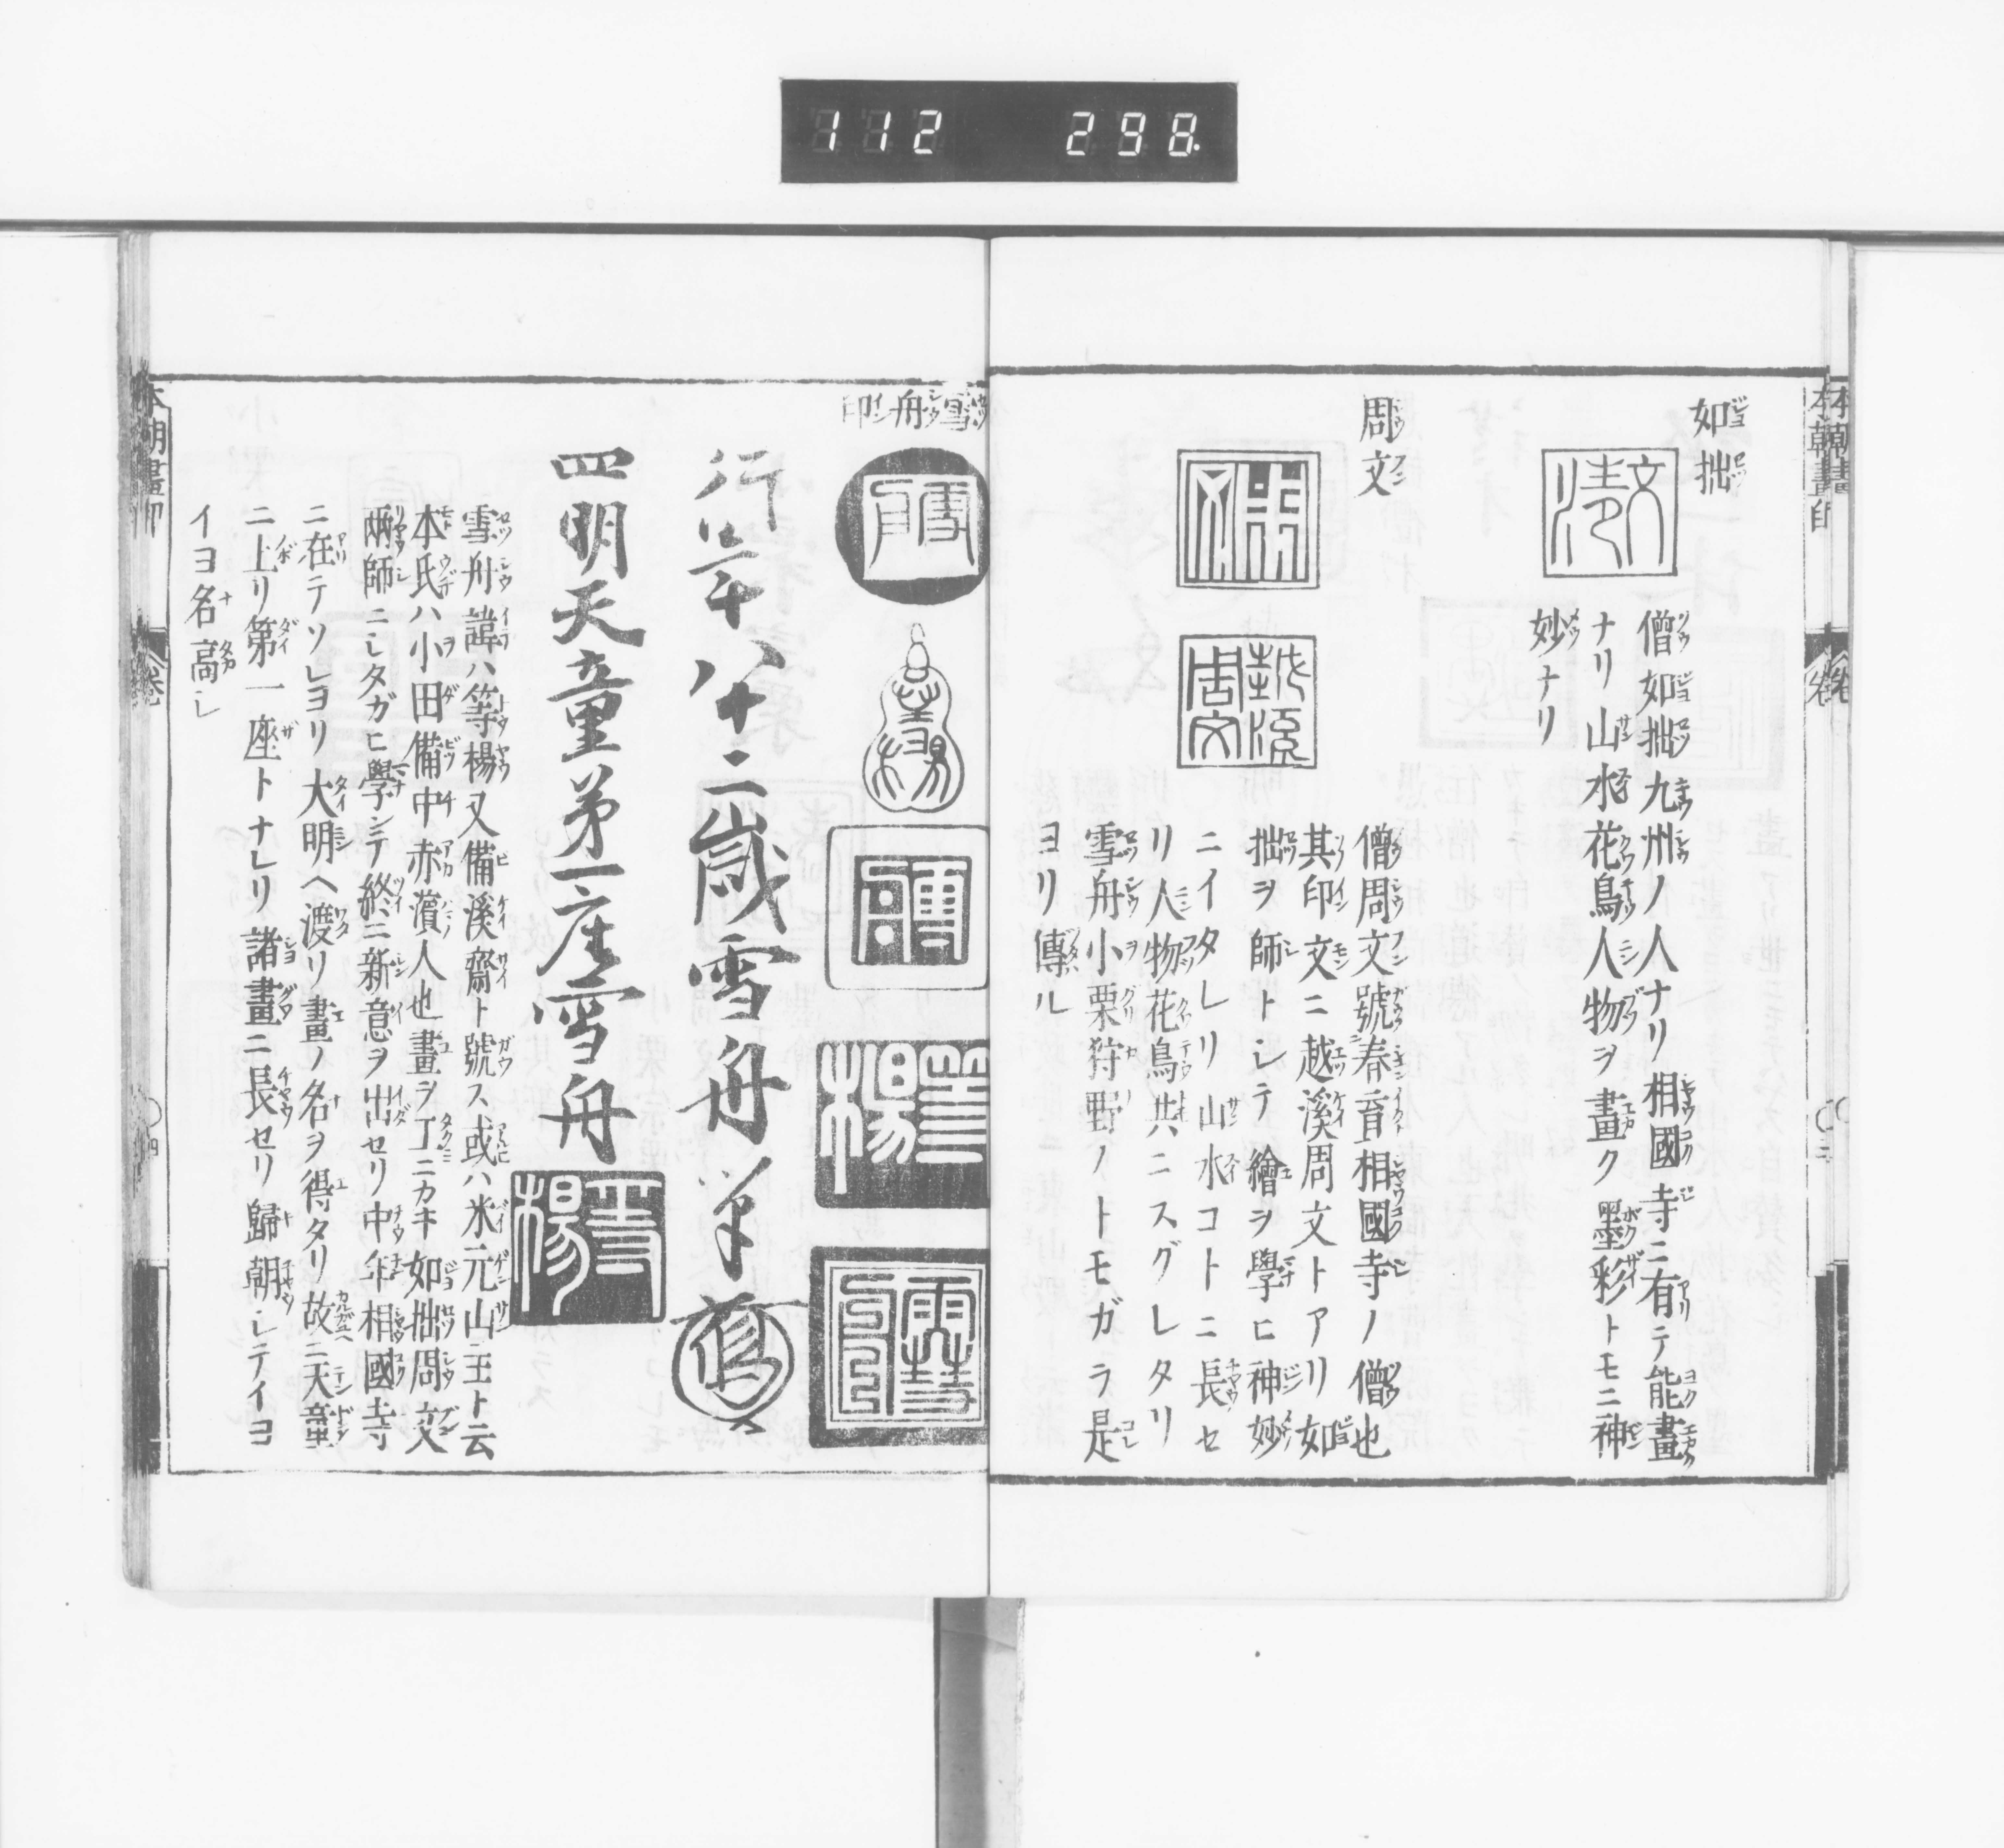 112 298.
如拙
僧如拙九州ノ人ナリ相國寺ニ有テ能畫
ナリ山水花鳥人物ヲ畫ク墨彩トモニ神
妙ナリ
周文
僧周文號春育相國寺ノ僧也
其印文ニ越溪周文トアリ如
拙ヲ師トシテ繪ヲ學ヒ神妙
ニイタレリ山水コトニ長セ
リ人物花鳥共ニスグレタリ
雪舟小栗狩野ノトモガラ是
ヨリ傳ル
雪舟印
等楊
等楊
行年八十二歳雪舟筆
四明天童第一座雪舟
等楊
雪舟諱ハ等楊又備溪齋ト號ス或ハ米元山主ト云
本氏ハ小田備中赤濱人也畫ヲ工ニカキ如拙周文
兩師ニシタガヒ學ンテ終ニ新意ヲ出セリ中年相國寺
ニ在テソレヨリ大明ヘ渡リ畫ノ名ヲ得タリ故ニ天童
ニ上リ第一座トナレリ諸畫ニ長セリ歸朝シテイヨ
イヨ名高シ
本朝畫印
卷